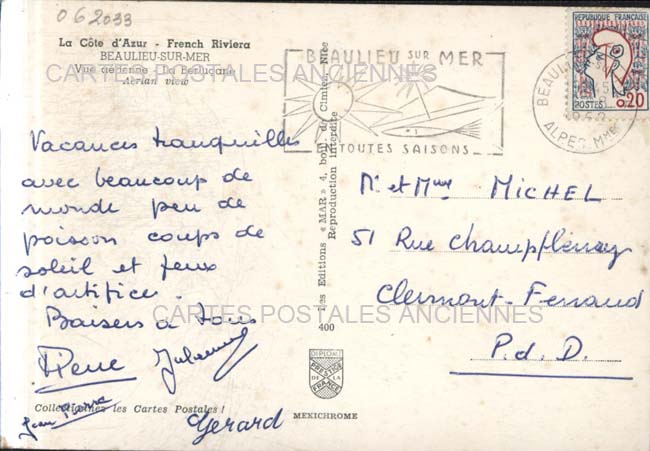 062033
La Côte d'Azur - French Riviera
BEAULIEU-SUR-MER
Vue aérienne - La Berlugane
Aerian view
CARTES POSTALES ANCIENNES
BEAULIEU SUR MER
TOUTES SAISONS
REPUBLIQUE FRANCAISE
POSTES
0,20
BEAULIEU
ALPES Mmes
Vacances tranquilles
avec beaucoup de
monde peu de
poisson coups de
soleil et feux
d'artifice.
Baisers à tous
Jean Pierre
Gerard
Mr et Mme MICHEL
51 Rue Champfleury
Clermont-Ferrand
P.d.D.
CARTES POSTALES ANCIENNES
Les Editions « MAR » 4, boul. de Cimiez, Nice
Reproduction interdite
400
DIPLOME
PRESTIGE
DE LA
FRANCE
MEXICHROME
Collectionnez les Cartes Postales !